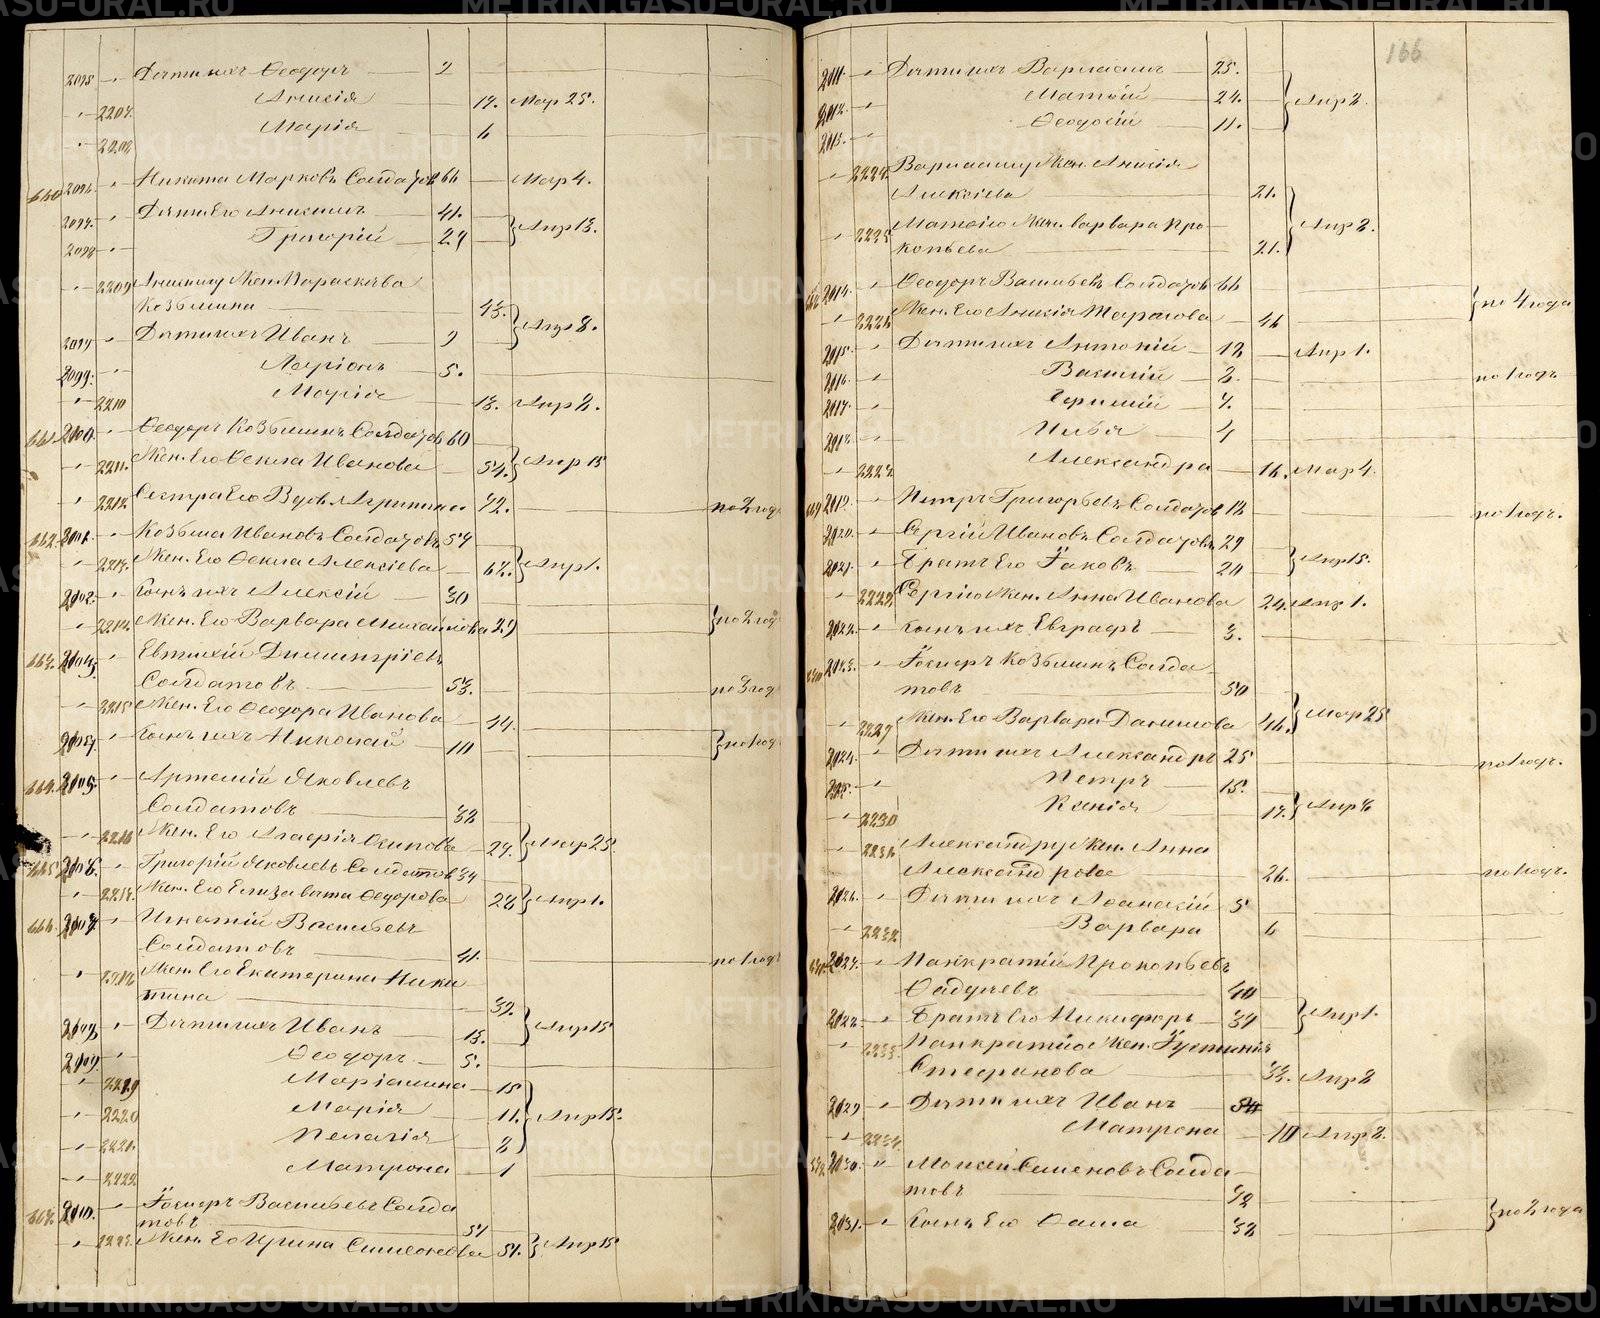 2095 " Дѣти ихъ Ѳеодоръ 2
" 2207. Анисія 17. Мар 25.
" 2208 Марія 6
660 2096. " Никита Марковъ Солдатов 66 Мар 4.
2097. " Дѣти Его Анисимъ 41.
Апр 15.
2098 " Григорій 29
" 2209 Анисиму Жен. Параскева
Козьмина 43.
Апр 8.
" Дѣти ихъ Иванъ 9
2099. " Ларіонъ 5.
" 2210 Марія 13. Апр 8.
661. 2100. " Ѳеодоръ Козьминъ Солдатов 60
" 2211. Жен. Его Ѳекла Иванова 54. Апр 15
" 2212. Сестра Его Вдов. Агрипина 72. по 2 год
662. 2101. " Козьма Ивановъ Солдатовъ 59
" 2213. Жен. Его Ѳекла Алексіева Апр 1.
2102. " Сынъ ихъ Алексій 30
" 2214. Жен. Его Варвара Михайлова 29 по 2 год
663. 2103. " Евтихій Димитріевъ
Солдатовъ 53. по 3 год
" 2215 Жен. Его Ѳеодора Иванова 44.
2104. " Сынъ ихъ Николай 10 по 1 год
664. 2105. " Артемій Яковлевъ
Солдатовъ 32
" 2216 Жен. Его Агафія Осипова 29. Мар 25.
665. 2106. " Григорій Яковлевъ Солдатов 34
" 2217. Жен. Его Елизавета Ѳедорова 28 Апр 1.
666. 2107. " Игнатій Васильевъ
Солдатовъ 41. по 1 год
" 2218 Жен. Его Екатерина Ники
тина 39.
Апр 15
2108. " Дѣти ихъ Иванъ 13.
2109. " Ѳеодоръ 5.
" 2219 Маріамна 15
" 2220 Марія 11. Апр 15.
" 2221. Пелагія 8
" 2222. Матрона 1
667. 2110. " Іосифъ Васильевъ Солда
товъ 51
" 2223. Жен. Его Ирина Симеонова 51. Апр 15
166
2111. " Дѣти ихъ Варлаамъ 25.
2112. " Матѳій 24. Апр 8.
2113. " Ѳеодосій 11.
" 2224. Варлааму Жен. Анисія
Алексіева 21.
" 2225 Матѳію Жен. Варвара Про- Апр 8.
копьева 21.
668 2114. " Ѳеодоръ Васильевъ Солдатов 66
по 4 года
" 2226 Жен. Его Анисія Тарасова 46
2115. " Дѣти ихъ Антоній 12 Апр 1.
2116. " Василій по 1 годъ
2117. " Ефимій 7.
2118 " Илья 4
" 2227. Александра 16. Мар 4.
669 2119. " Петръ Григорьевъ Солдатов 18 по 1 годъ.
2120. " Сергій Ивановъ Солдатовъ 29
Апр 15.
2121. " Братъ Его Іаковъ 20
" 2228 Сергію Жен. Анна Иванова 24. Апр 1.
2122. " Сынъ ихъ Евграфъ 3.
670 2123. " Іосифъ Козьминъ Солда
товъ 50
Мар 25
" 2229 Жен. Его Варвара Данилова 46.
2124. " Дѣти ихъ Александръ 25 по 1 годъ.
2125. " Петръ 15.
Апр 8
" 2230 Ксенія 17.
" 2231 Александру Жен. Анна
Александрова 26. по 1 годъ.
2126. " Дѣти ихъ Аѳанасій 5
" 2232. Варвара 6
671 2127. " Панкратій Прокопьевъ
Ѳадѣевъ 40
Апр 1.
2128. " Братъ Его Никифоръ 34
" 2233. Панкратію Жен. Іустинія
Стефанова 33. Апр 8
2129 " Дѣти ихъ Иванъ
" 2234 Матрона 10 Апр 8.
672 2130. " Моисей Семеновъ Солда-
товъ 72
по 2 года
2131. " Сынъ Его Ѳома 38